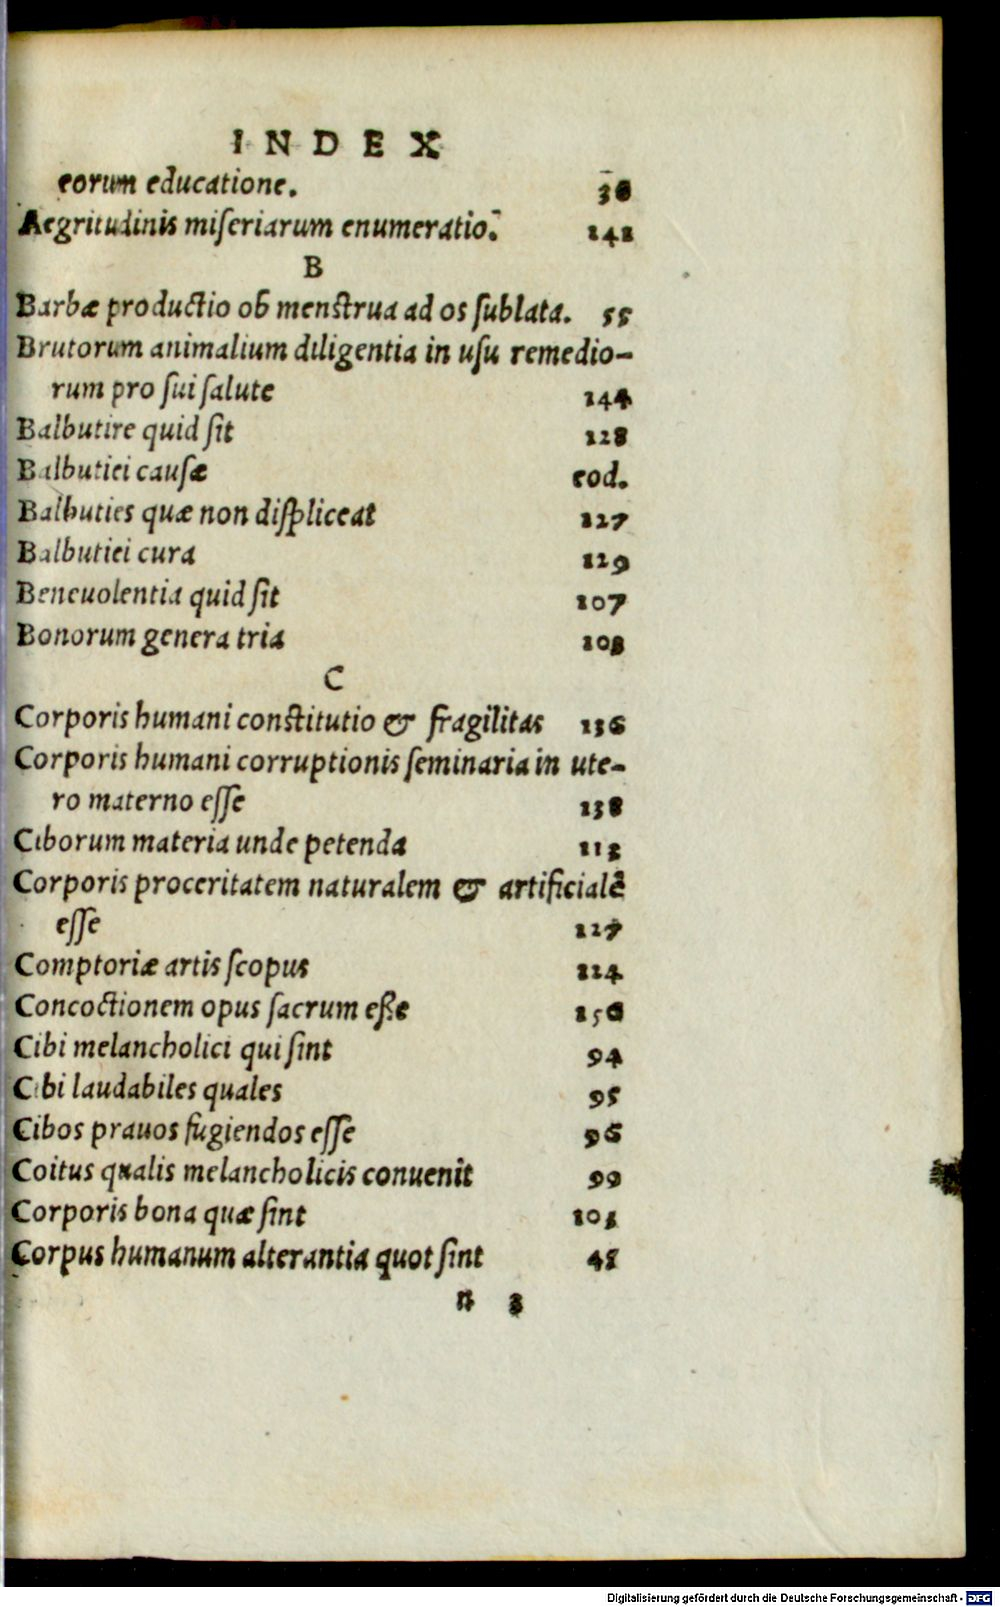 INDEX
eorum educatione. 36
Aegritudinis miſeriarum enumeratio. 141
B
Barbæ productio ob menſtrua ad os ſublata. 55
Brutorum animalium diligentia in uſu remedio-
rum pro ſui ſalute 144
Balbutire quid ſit 128
Balbutiei cauſæ eod.
Balbuties quæ non diſpliceat 127
Balbutiei cura 129
Beneuolentia quid ſit 107
Bonorum genera tria 103
C
Corporis humani conſtitutio & fragilitas 136
Corporis humani corruptionis ſeminaria in ute-
ro materno eſſe 138
Ciborum materia unde petenda 113
Corporis proceritatem naturalem & artificialẽ
eſſe 127
Comptoriæ artis ſcopus 114
Concoctionem opus ſacrum eſſe 156
Cibi melancholici qui ſint 94
Cibi laudabiles quales 95
Cibos prauos fugiendos eſſe 96
Coitus qualis melancholicis conuenit 99
Corporis bona quæ ſint 103
Corpus humanum alterantia quot ſint 48
n 3
Digitalisierung gefördert durch die Deutsche Forschungsgemeinschaft - DFG